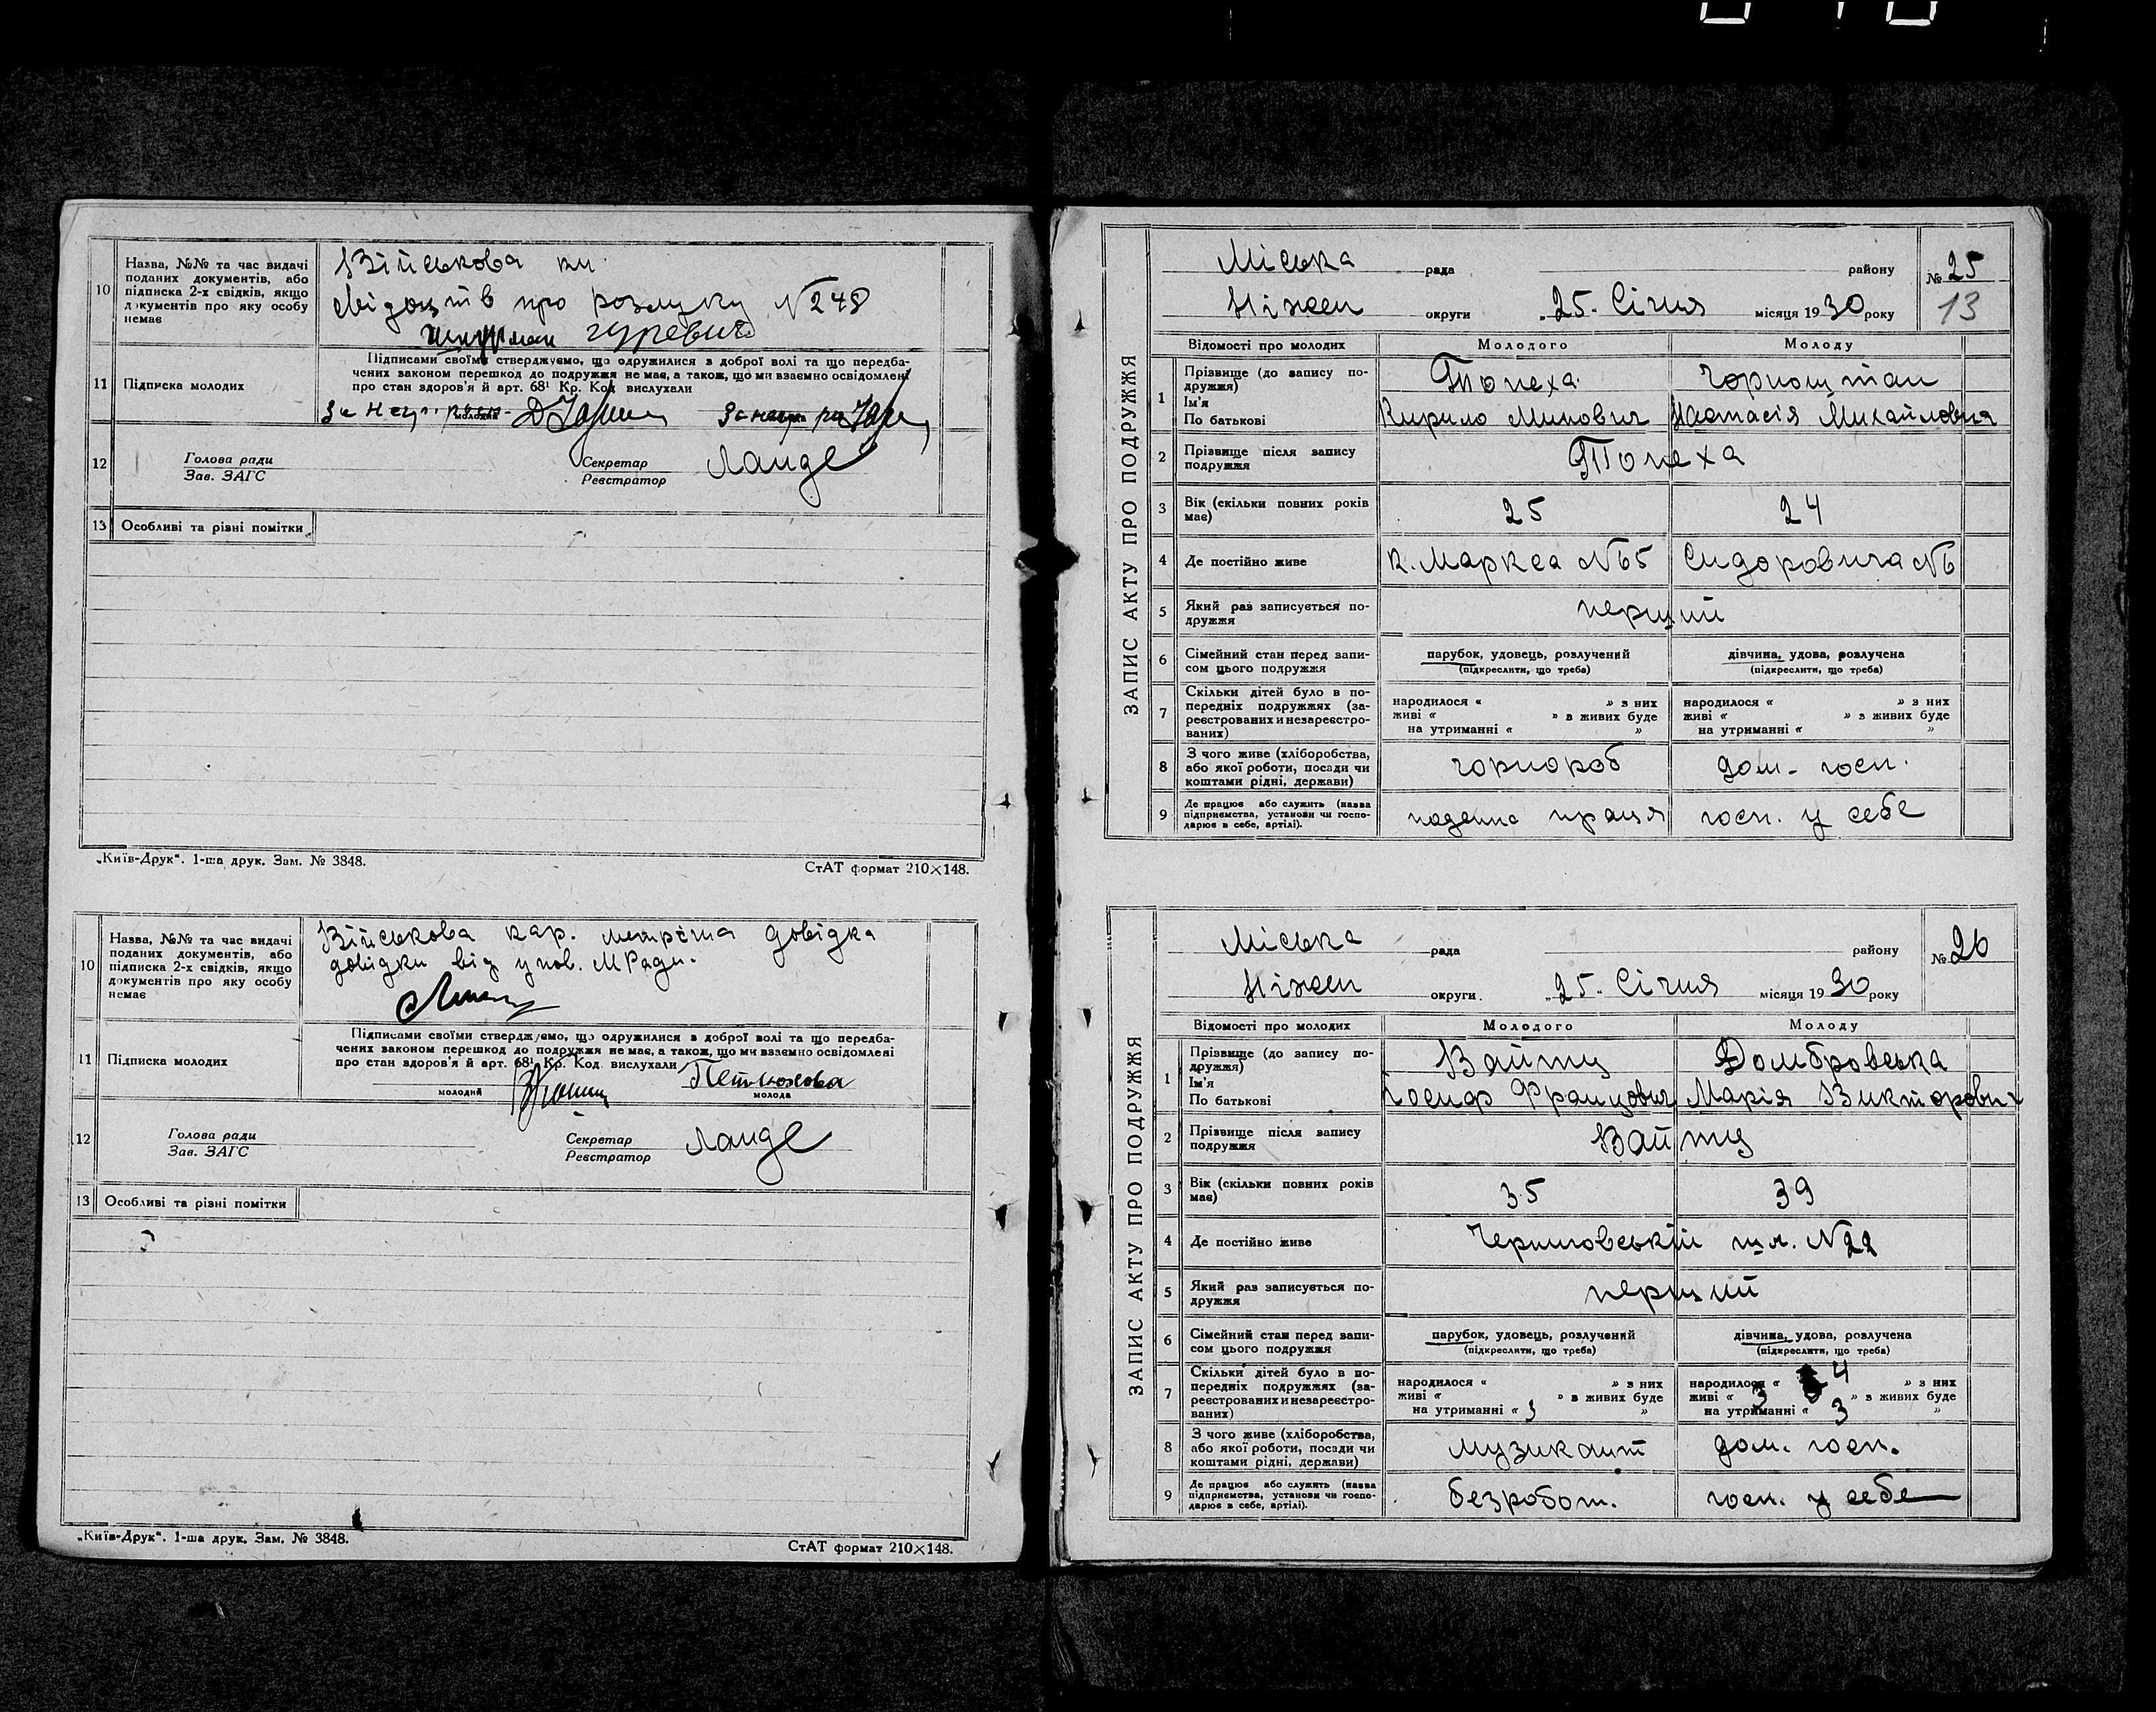 10 Назва, №№ та час видачі
поданих документів, або
підписка 2-х свідків, якщо
документів про яку особу
немає
Військова кн.
свідоцтв про розлуку №248
гуревич
11 Підписка молодих
Підписами своїми стверджуємо, що одружилися з доброї волі та що передба-
чених законом перешкод до подружжя не має, а також, що ми взаємно освідомлені
про стан здоров'я й арт. 68¹ Кр. Код вислухали
За
молодий
12 Голова ради
Зав. ЗАГС
Секретар
Реєстратор
Ланде
13 Особливі та різні помітки
„Київ-Друк“. 1-ша друк. Зам. № 3848.
СтАТ формат 210×148.
10 Назва, №№ та час видачі
поданих документів, або
підписка 2-х свідків, якщо
документів про яку особу
немає
Військова кар. метрічна довідка
довідки від упов. МРади.
11 Підписка молодих
Підписами своїми стверджуємо, що одружилися з доброї волі та що передба-
чених законом перешкод до подружжя не має, а також, що ми взаємно освідомлені
про стан здоров'я й арт. 68¹ Кр. Код вислухали
молодий
молода
12 Голова ради
Зав. ЗАГС
Секретар
Реєстратор
Ланде
13 Особливі та різні помітки
„Київ-Друк“. 1-ша друк. Зам. № 3848.
СтАТ формат 210×148.
ЗАПИС АКТУ ПРО ПОДРУЖЖЯ
Міська рада району № 25
Ніжен округи „25“ Січня місяця 1930 року
13
Відомості про молодих Молодого Молоду
1 Прізвище (до запису по-
дружжя)
Ім'я
По батькові
Топеха Чорноштан
Кирило Минович Настасія Михайловня
2 Прізвище після запису
подружжя
Топеха
3 Вік (скільки повних років
має)
25 24
4 Де постійно живе К. Маркса №65 Сидоровича №6
5 Який раз записується по-
дружжя
перший
6 Сімейний стан перед запи-
сом цього подружжя
парубок, удовець, розлучений
(підкреслити, що треба)
дівчина, удова, розлучена
(підкреслити, що треба)
7 Скільки дітей було в по-
передніх подружжях (за-
реєстрованих и незареєстро-
ваних)
народилося « » з них
живі « » з живих буде
на утриманні « »
народилося « » з них
живі « » з живих буде
на утриманні « »
8 З чого живе (хліборобства,
або якої роботи, посади чи
коштами рідні, держави)
чорнороб дом. госп.
9 Де працює або служить (назва
підприємства, установи чи госпо-
дарює в себе, артілі).
поденна праця госп. у себе
ЗАПИС АКТУ ПРО ПОДРУЖЖЯ
Міська рада району № 26
Ніжен округи. „25“ Січня місяця 1930 року
Відомості про молодих Молодого Молоду
1 Прізвище (до запису по-
дружжя)
Ім'я
По батькові
Вайтц Домбровська
Іосиф Францович Марія Викторович
2 Прізвище після запису
подружжя
Вайтц
3 Вік (скільки повних років
має)
35 39
4 Де постійно живе Черниговській шл. №22
5 Який раз записується по-
дружжя
перший
6 Сімейний стан перед запи-
сом цього подружжя
парубок, удовець, розлучений
(підкреслити, що треба)
дівчина, удова, розлучена
(підкреслити, що треба)
7 Скільки дітей було в по-
передніх подружжях (за-
реєстрованих и незареєстро-
ваних)
народилося « » з них
живі « » з живих буде
на утриманні « 3 »
народилося « 4 » з них
живі « 3 » з живих буде
на утриманні « 3 »
8 З чого живе (хліборобства,
або якої роботи, посади чи
коштами рідні, держави)
музикант дом. госп.
9 Де працює або служить (назва
підприємства, установи чи госпо-
дарює в себе, артілі).
безробот. госп. у себе